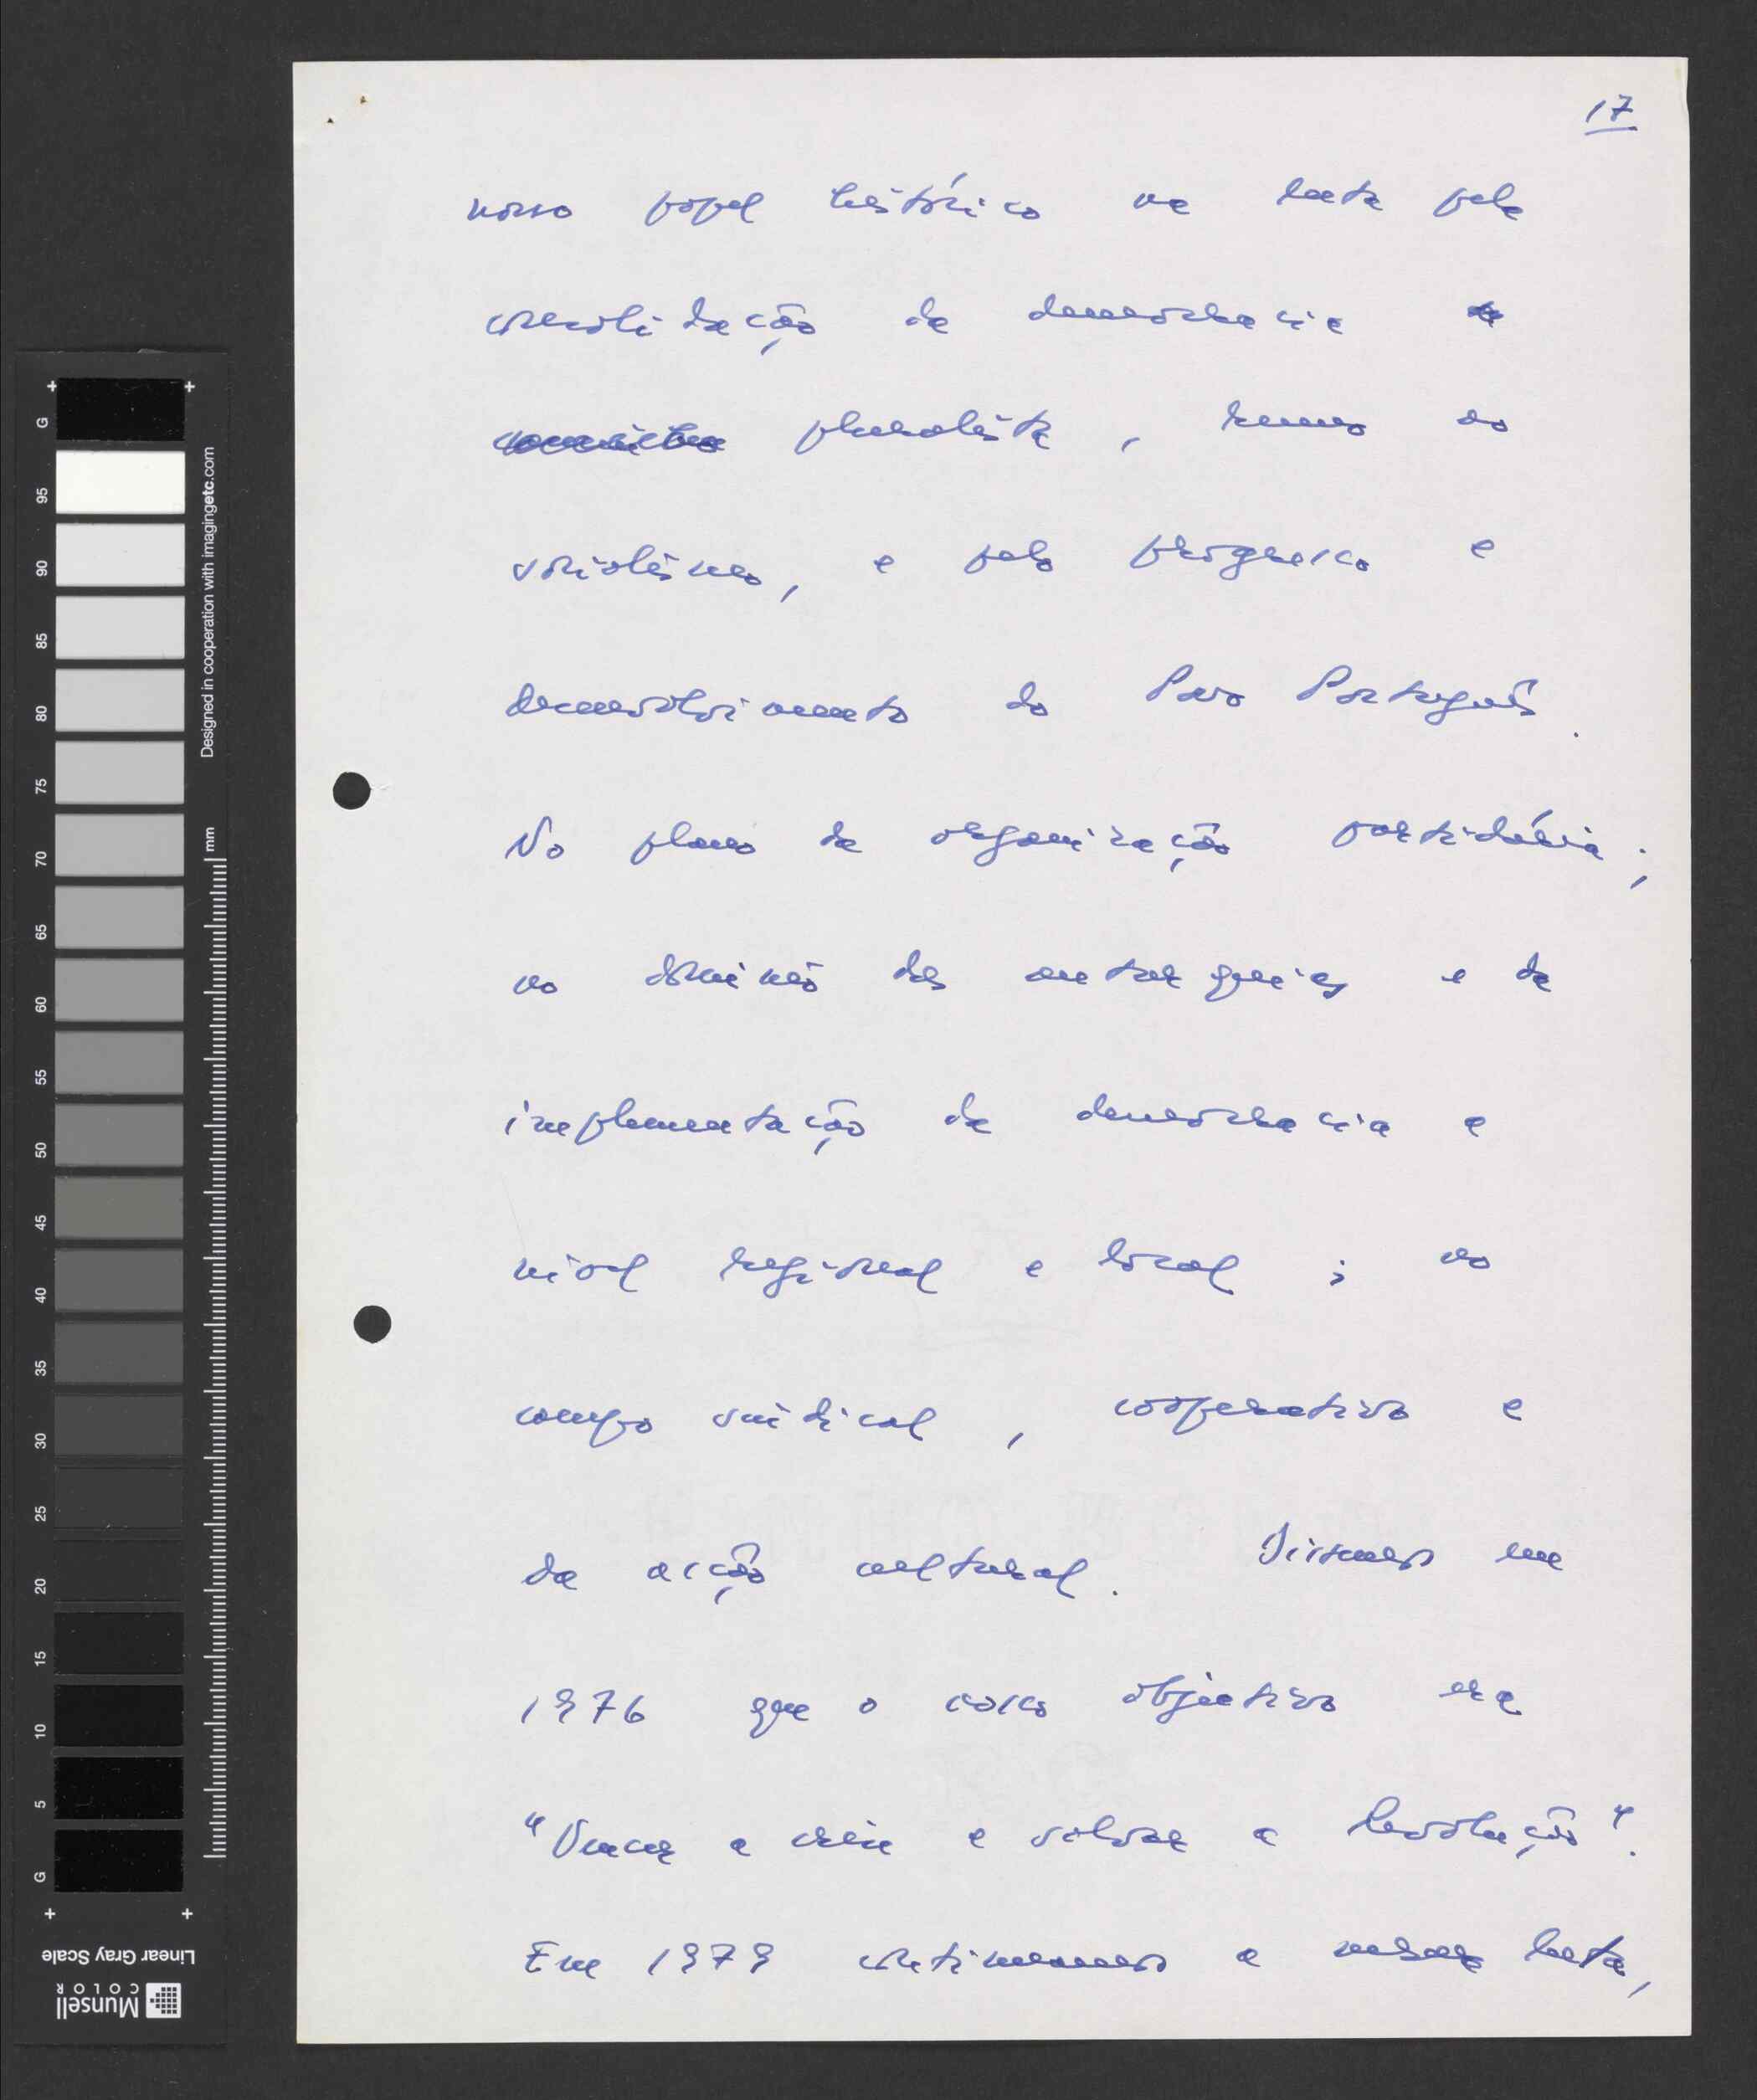 17
nosso papel histórico na luta pela
consolidação da democracia
pluralista, rumo ao
socialismo, e pelo progresso e
desenvolvimento do Povo Português.
No plano da organização partidária;
no domínio das autarquias e da
implementação da democracia a
nível regional e local; no
campo sindical, cooperativo e
da acção cultural. Dissemos em
1976 que o nosso objectivo era
"Vencer a crise e salvar a Revolução".
Em 1979 continuamos a luta,
G
95
90
85
80
75
70
65
60
55
50
45
40
35
30
25
20
15
10
5
G
Designed in cooperation with imagingetc.com
mm
Linear Gray Scale
Munsell
COLOR